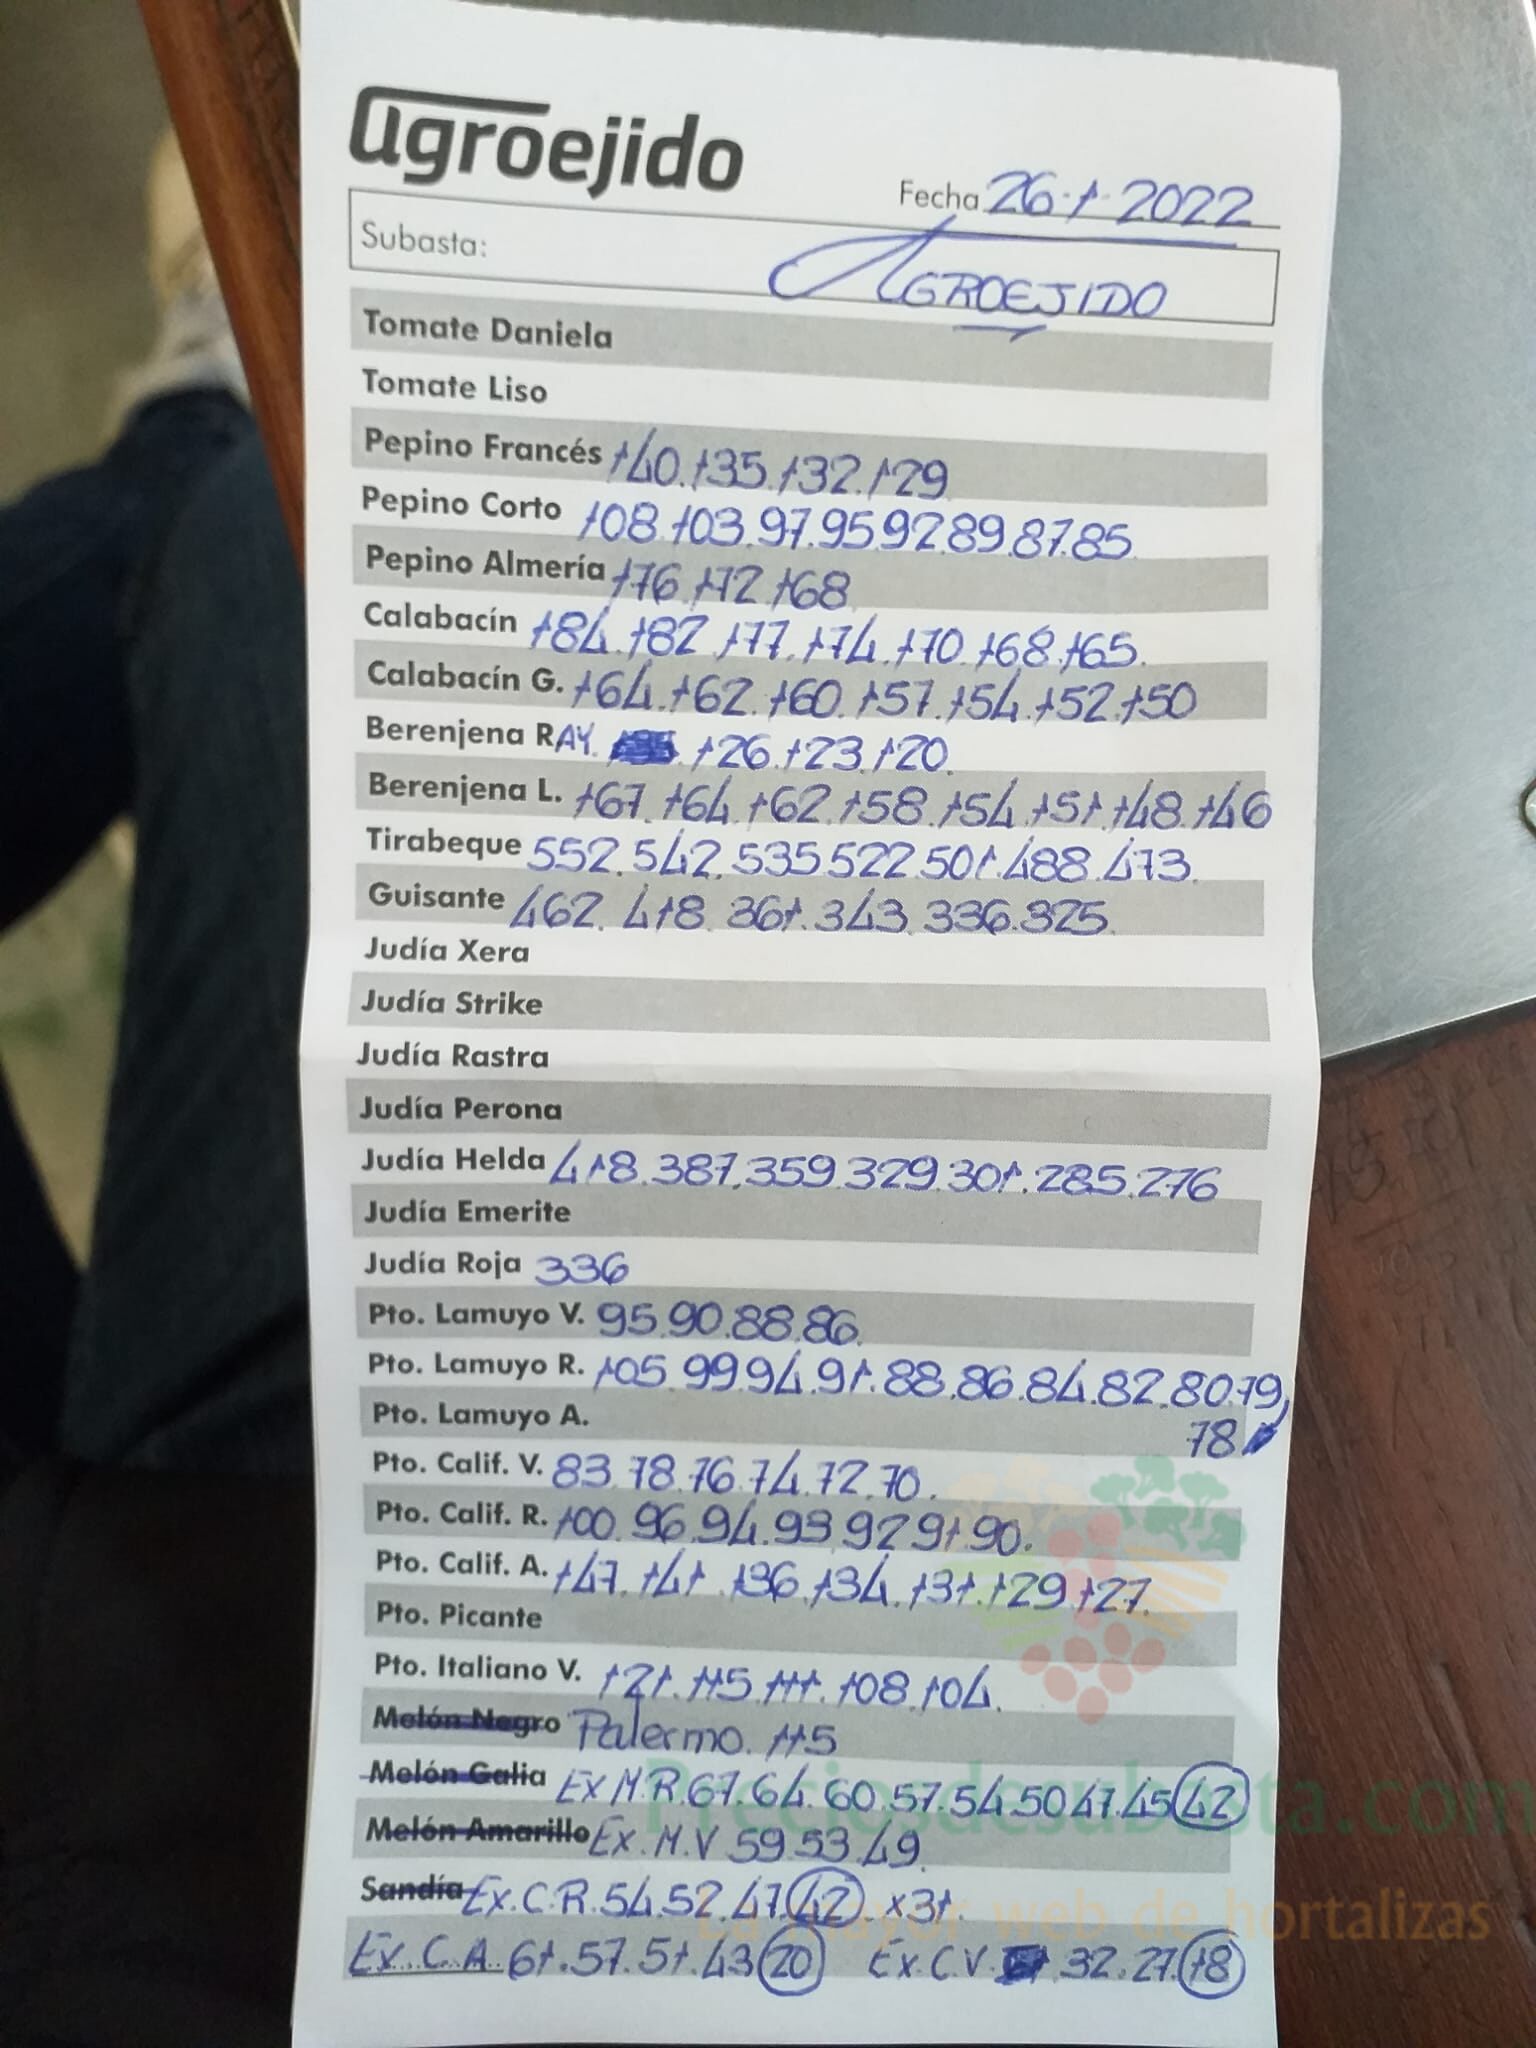 agroejido
Fecha 26-1-2022
Subasta: AGROEJIDO
Tomate Daniela
Tomate Liso
Pepino Francés 140.135.132.129
Pepino Corto 108.103.97.95.92.89.87.85
Pepino Almería 176.172.168
Calabacín 184.182.177.174.170.168.165.
Calabacín G. 164.162.160.157.154.152.150
Berenjena RAY. 126.123.120.
Berenjena L. 167.164.162.158.154.151.148.146
Tirabeque 552.542.535.522.501.488.473.
Guisante 462.418.361.343.336.325.
Judía Xera
Judía Strike
Judía Rastra
Judía Perona
Judía Helda 418.387.359.329.301.285.276
Judía Emerite
Judía Roja 336
Pto. Lamuyo V. 95.90.88.86.
Pto. Lamuyo R. 105.99.94.91.88.86.84.82.80.79,
Pto. Lamuyo A. 78.
Pto. Calif. V. 83.78.76.74.72.70.
Pto. Calif. R. 100.96.94.93.92.91.90.
Pto. Calif. A. 147.141.136.134.131.129.127.
Pto. Picante
Pto. Italiano V. 121.115.111.108.104.
Melón Negro Palermo. 115
Melón Galia Ex M.R.67.64.60.57.54.50.47.45.42
Melón Amarillo Ex.M.V 59.53.49.
Sandía Ex.C.R.54.52.47.42. x31.
Ex.C.A. 61.57.51.43.20 Ex.C.V. 32.27.18
Preciosdesubasta.com
La mayor web de hortalizas